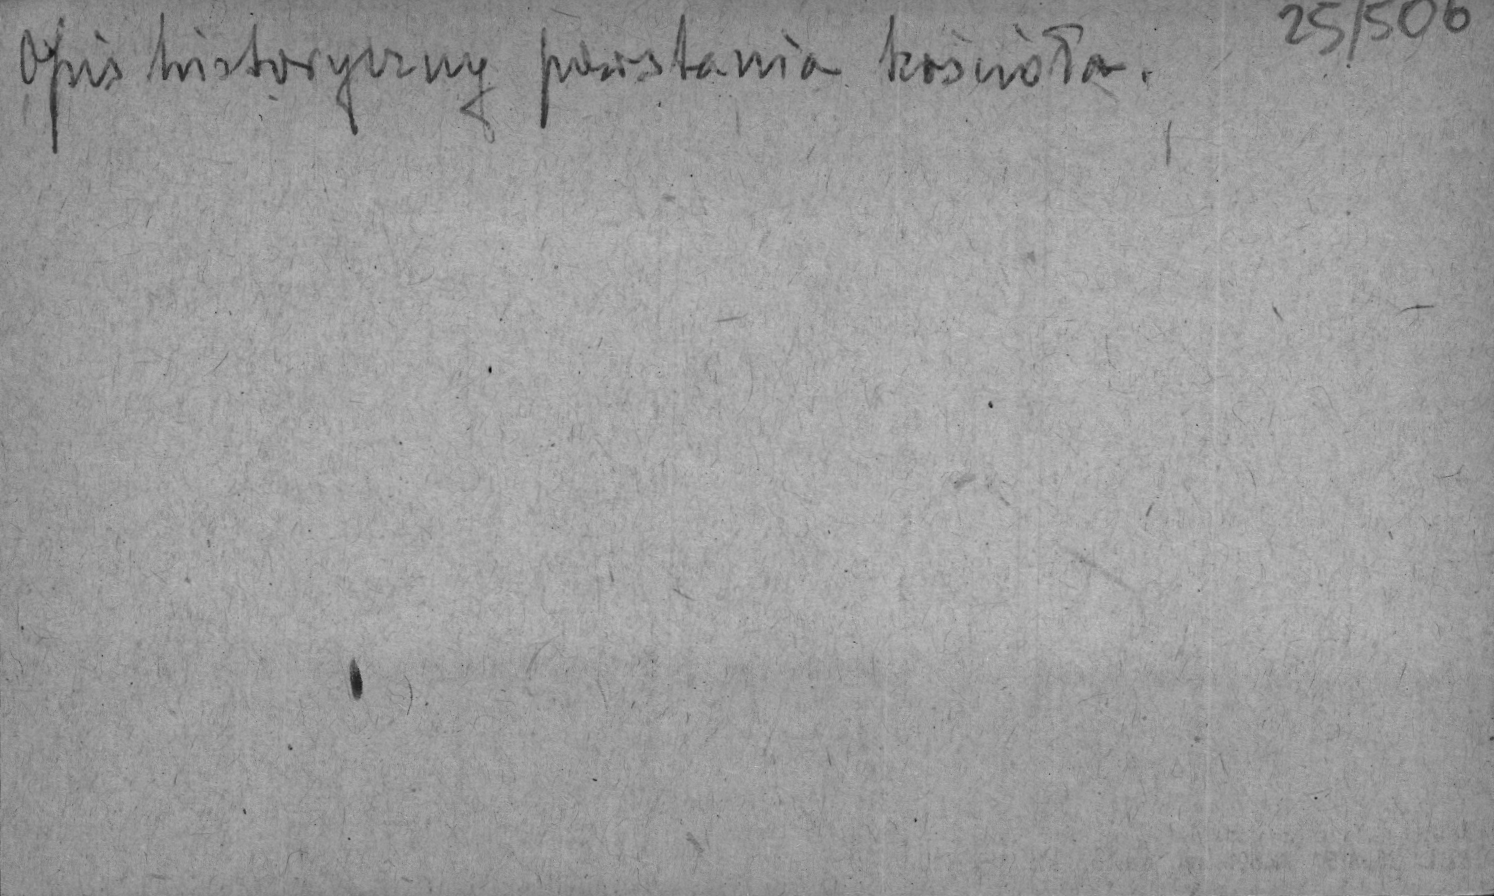 25/506
Opis historyczny powstania kościoła.